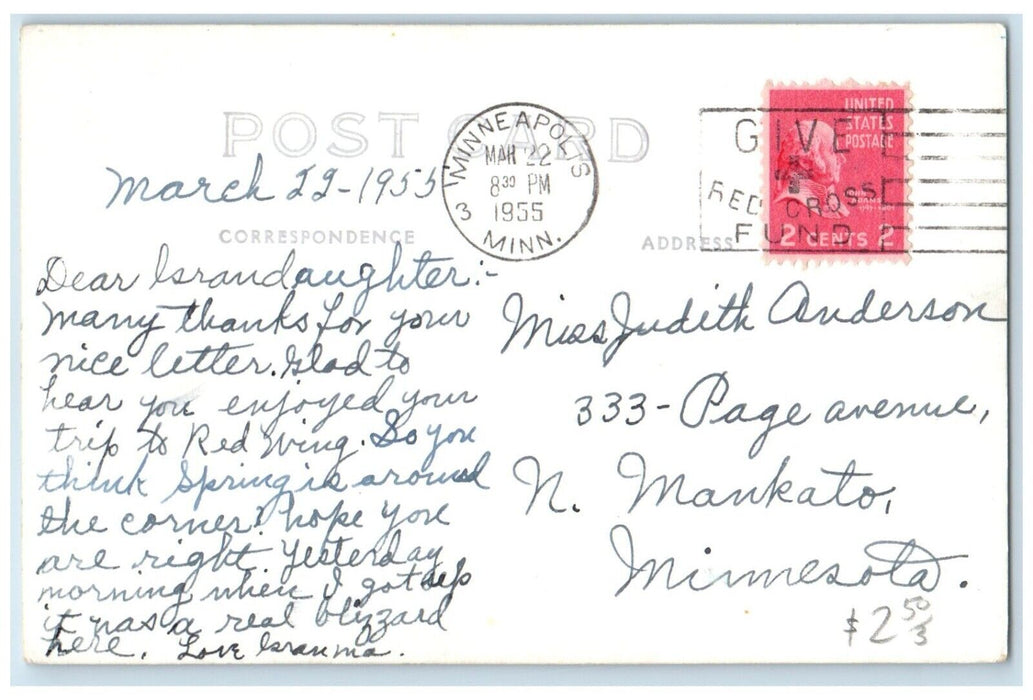 POST CARD
MINNEAPOLIS
MAR 22
8 30 PM
1955
3 MINN.
GIVE
RED CROSS
FUND
UNITED
STATES
POSTAGE
2 CENTS 2
March 22-1955
CORRESPONDENCE
ADDRESS
Dear Grandaughter:-
Many thanks for your
nice letter. Glad to
hear you enjoyed your
trip to Red Wing. So you
think Spring is around
the corner? hope you
are right. Yesterday
morning when I got up
it was a real blizzard
here. Love Granma.
Miss Judith Anderson
333- Page avenue,
N. Mankato,
Minnesota.
$2 50
3